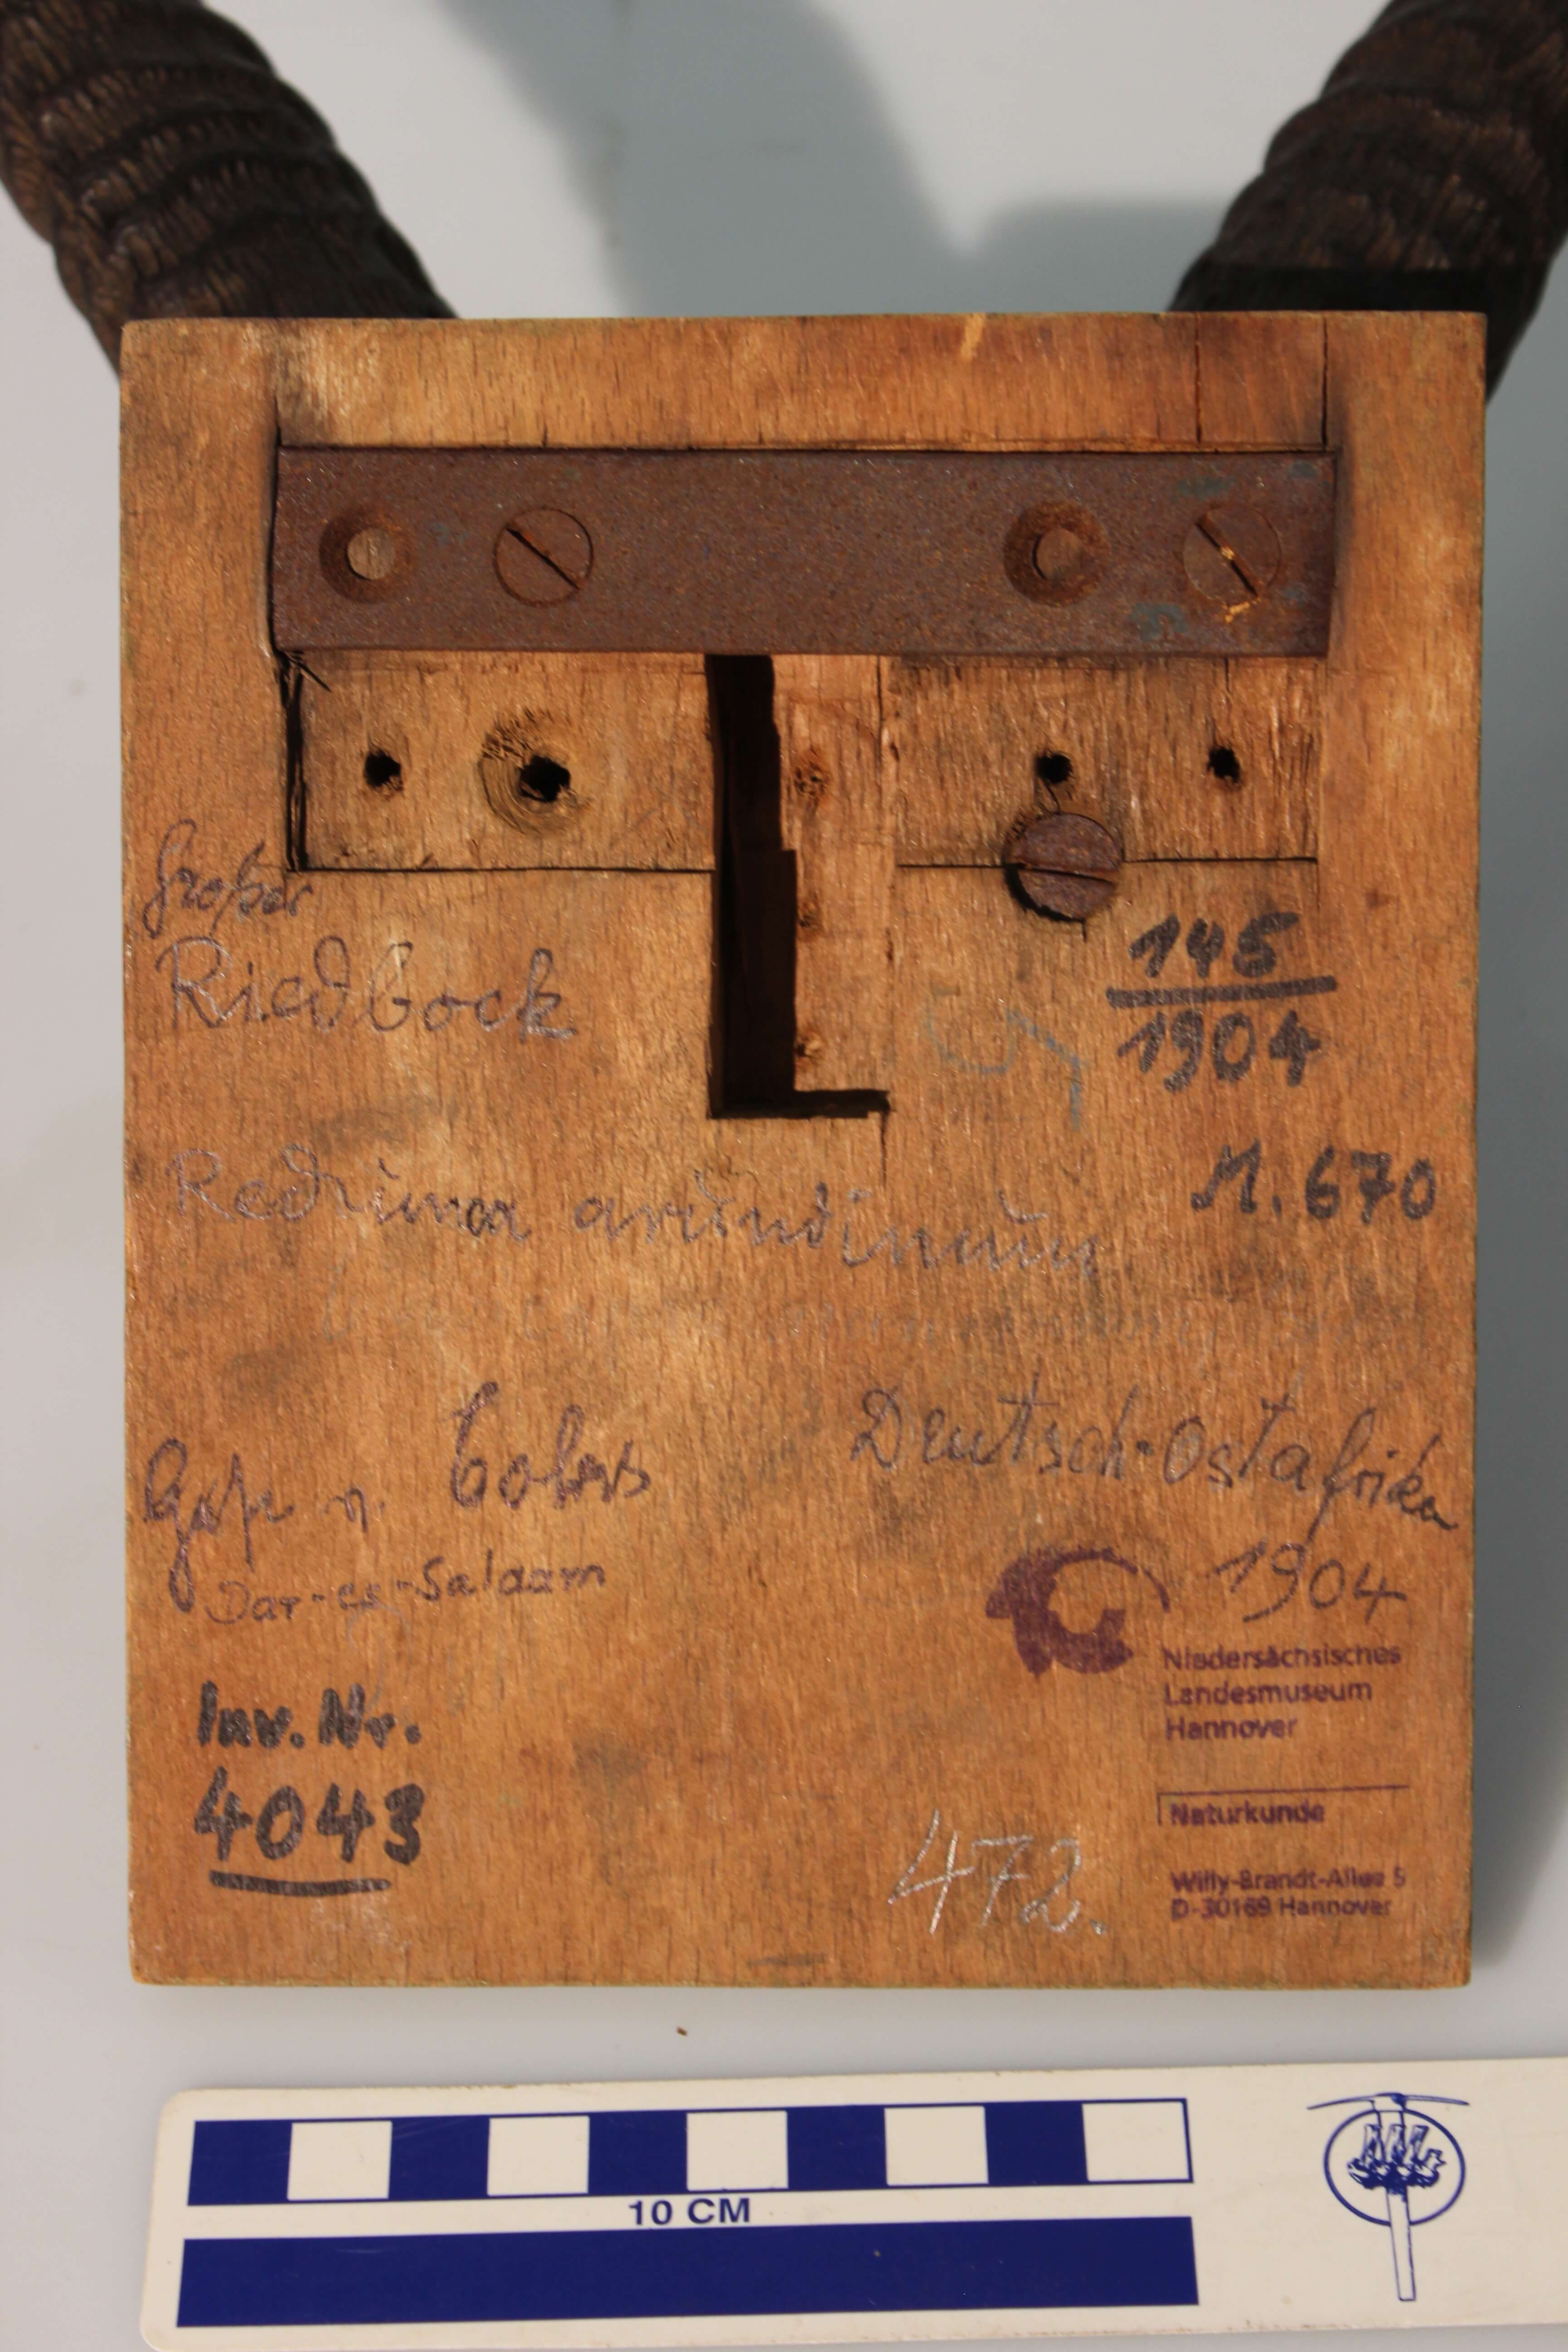 Großer
Riedbock
145
1904
M. 670
Redunca arundinum
Gesch. v.
Deutsch-Ostafrika
Dar-es-Salaam
1904
Niedersächsisches
Landesmuseum
Hannover
Naturkunde
Willy-Brandt-Allee 5
D-30169 Hannover
Inv. Nr.
4043
472.
10 CM